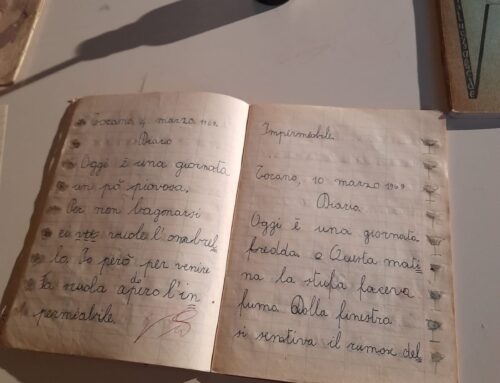 Tocano, 4 marzo
Diario
Oggi è una giornata
un pò piovosa.
Per non bagonarsi
vuiole l'onabrel
lo. Io però per venire
do
a scuola apero l'in
permiabile.
Impermeabile.
Tocano, 10 marzo 1969
Diario
Oggi è una giornata
fredda. Questa mati
na la stufa faceva
fumo Dalla finestra
si sentiva il rumore del